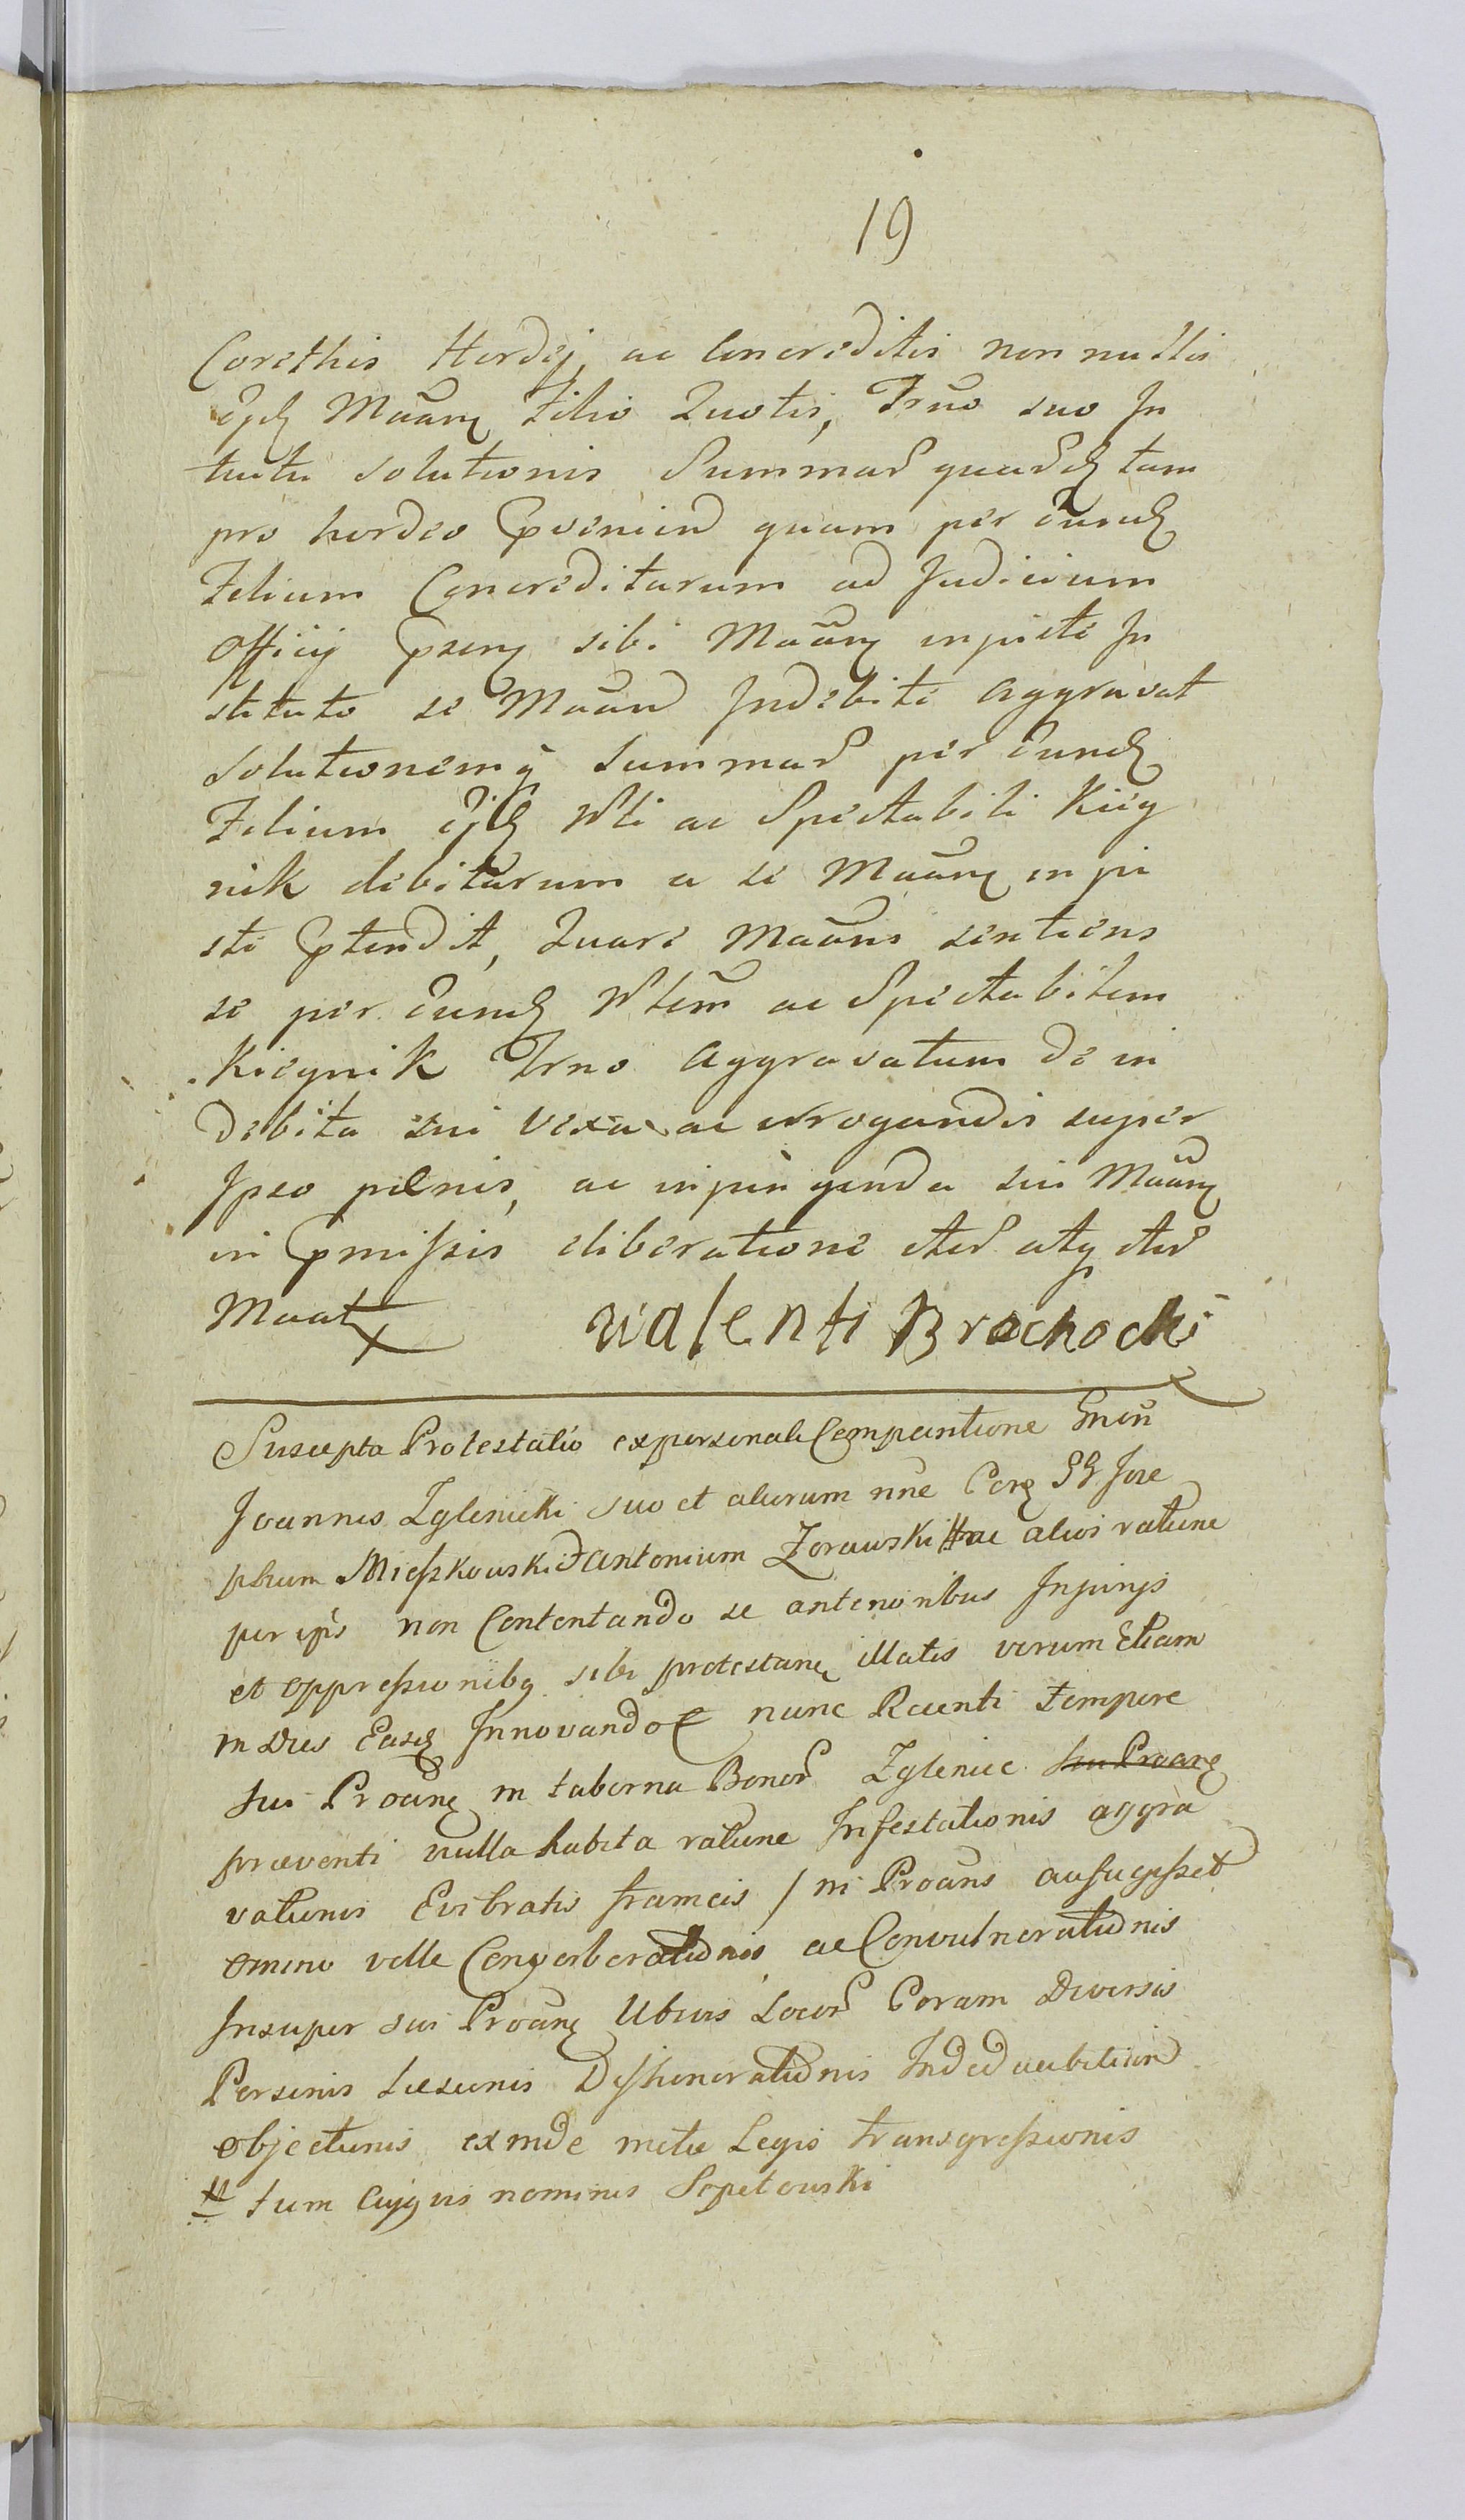 19
Corethis Hordej, ac Concreditis non nullis
ejd Maãn Filio Quotis, Trno suo In
tuitu solutionis Summar quard tam
pro hordeo pvenien quam per eund
Filium Concreditarum ad Judicium
Officij psens sibi Maãn injuste In
stituto se Maan Indebite aggravat
solutionemq summar per eund
Filium ejd ac Spectabili Kiey
nik debitarum a se Maãn inju
ste ptendit, Quare Maãns sentiens
se per eund ac Spectabilem
Kieynik Trno aggravatum de in
debita sui vexa ac irrogandis super
Ipso pœnis, ac injungenda sui Maãn
in pmissis deliberatione iter atq iter
Maat
Walenti Brochocki
Suscepta Protestatio ex personali Comparitione Gnẽri
Joannes Zglenicki suo et aliorum nne Cora GG Jose
phum Mieszkowski et Antonium Zorawski # ac alios ratione
per ipsos non Contentando se anterioribus Injurijs
et oppressionibq sibi protestan illatis verum Etiam
in Dies Easd Innovando nunc Recenti tempore
sui Proãn in taberna Bonor Zglenice sui Proãn
præventi nulla habita ratione Infestationis aggra
vationis Evibratis frameis / ni Proãns aufugisset
omino velle Converberationis ac Convulnerationis
Insuper sui Proãn Ubivis Locor Coram Diversis
Personis Læsionis Dishonorationis
objectionis exinde metu Legis transgressionis
# tum Cujqvis nominis Sepetowski